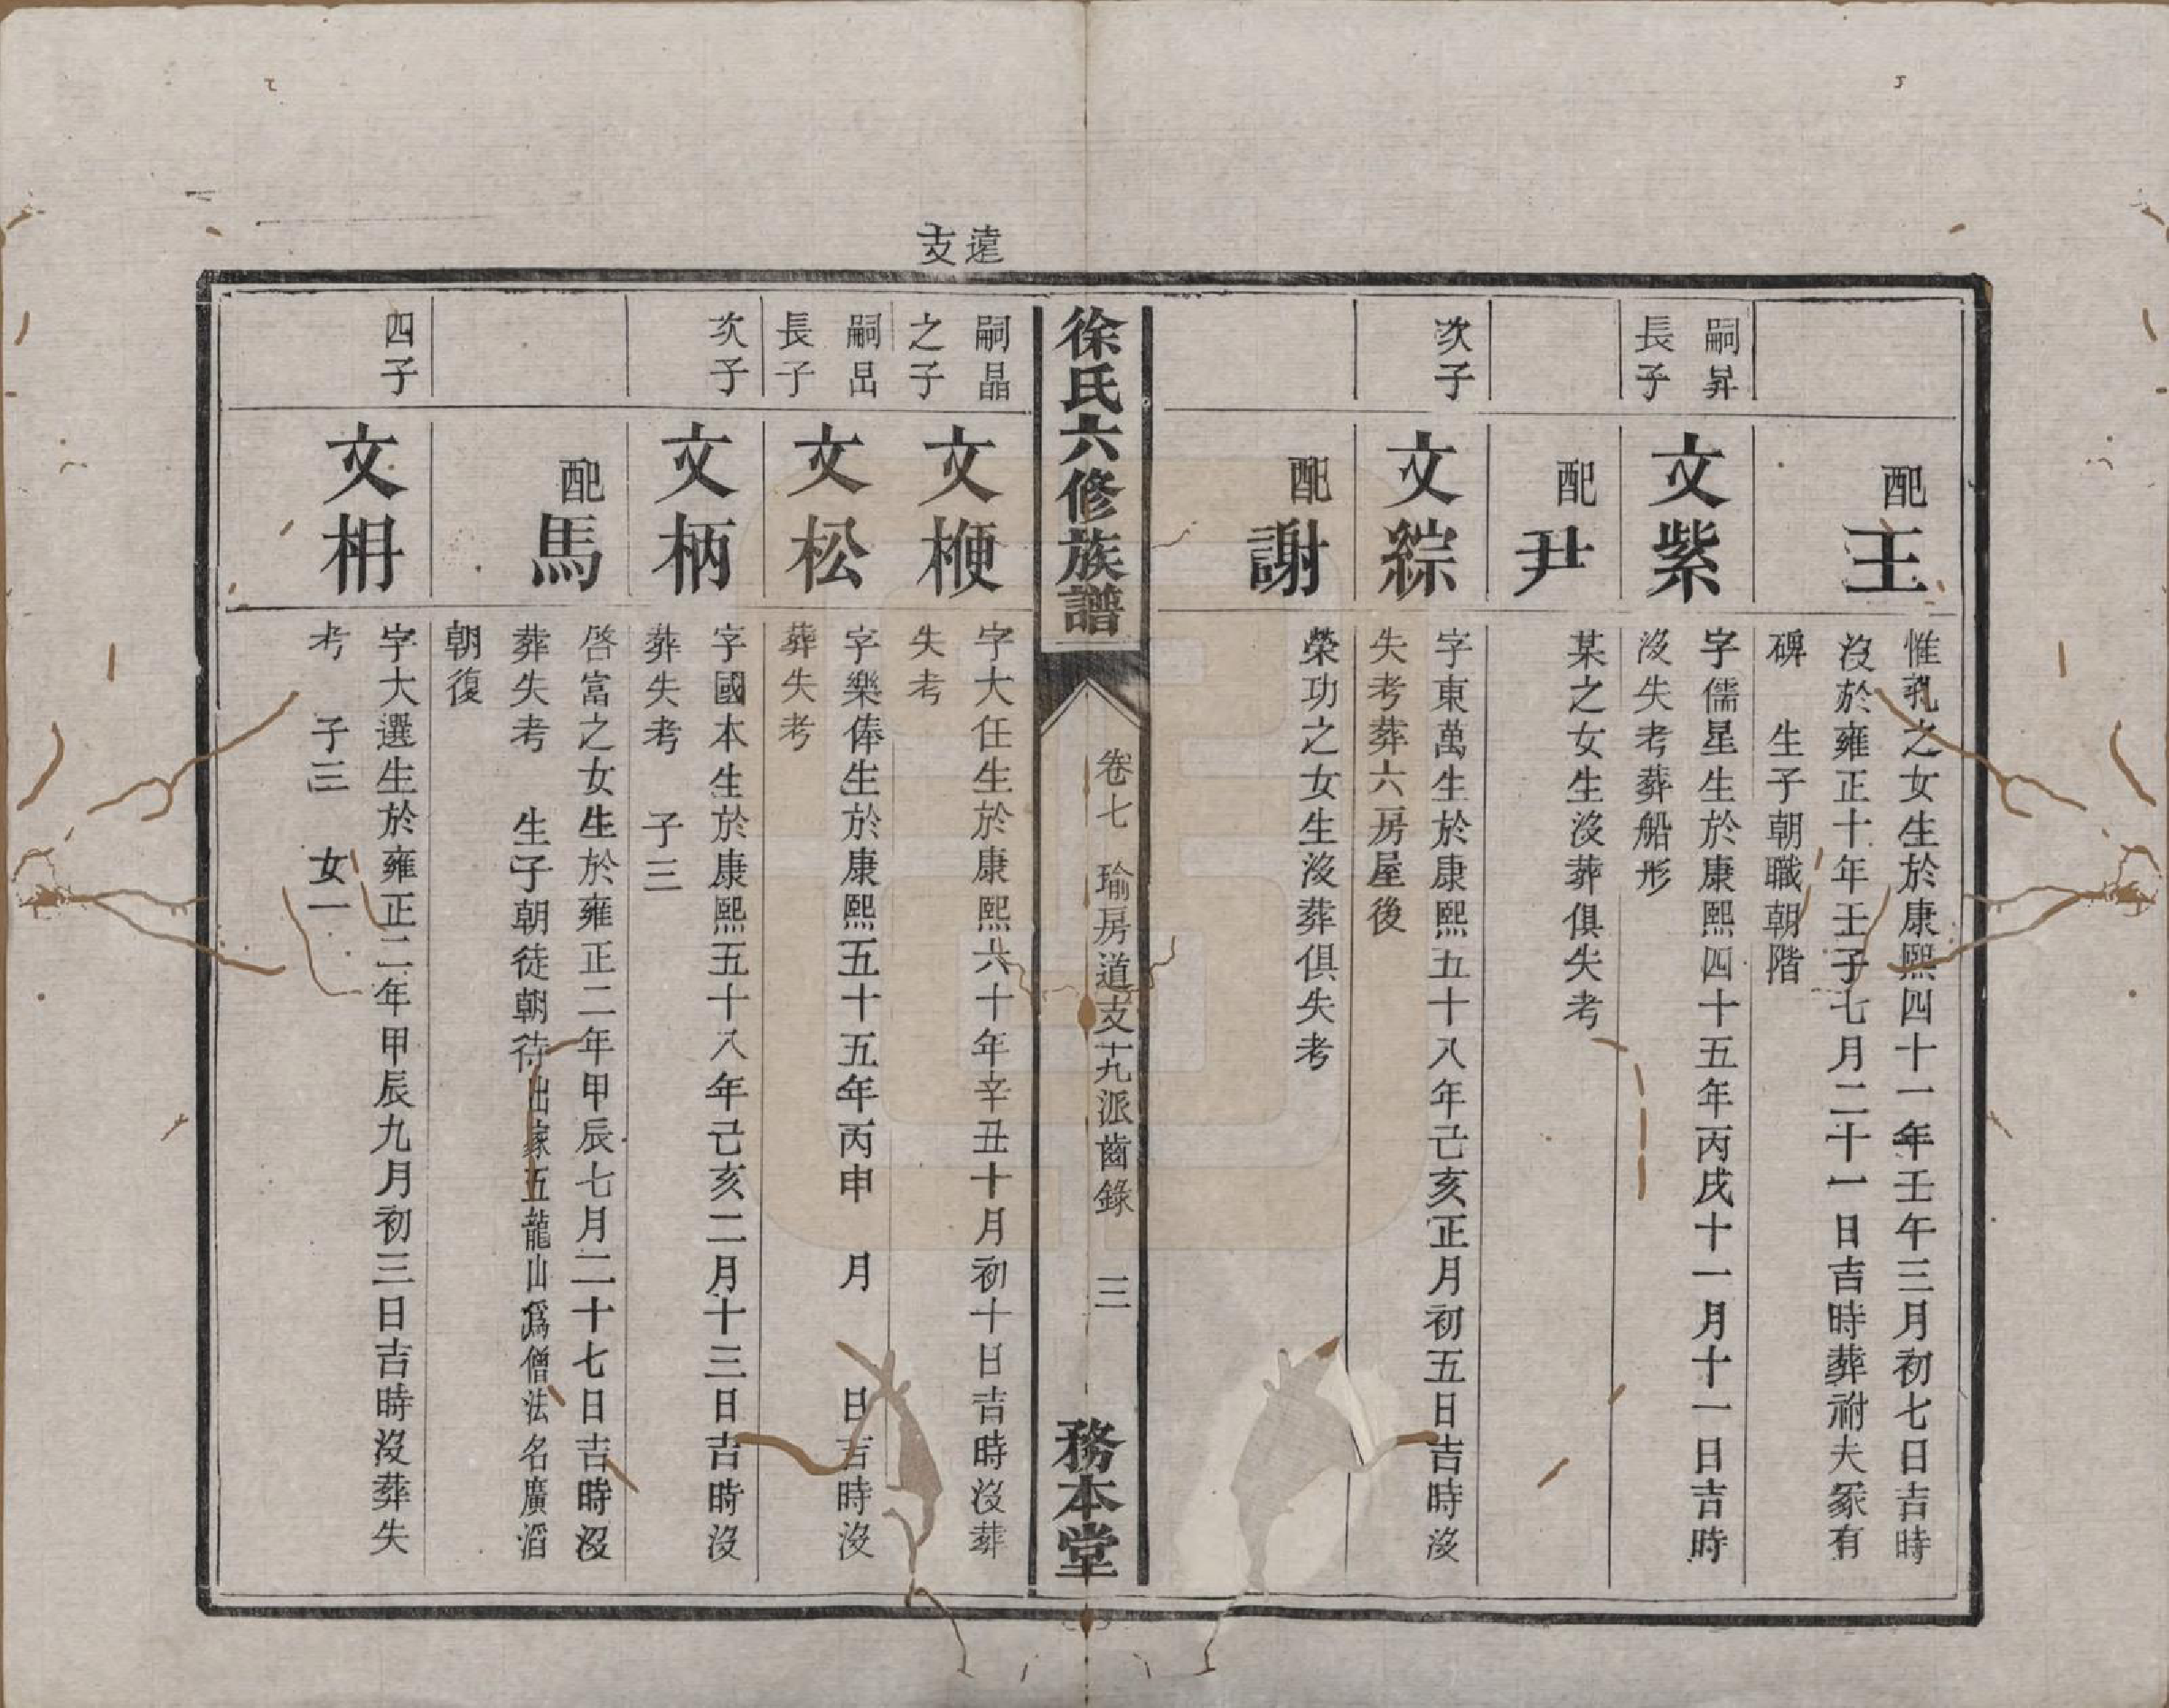 配王
惟孔之女生於康熙四十一年壬午三月初七日吉時
沒於雍正十年壬子七月二十一日吉時葬祔夫冢有
碑　生子朝職朝階
嗣昇
長子
文紫
字儒星生於康熙四十五年丙戌十一月十一日吉時
沒失考葬船形
配尹
某之女生沒葬俱失考
次子
文綜
字東萬生於康熙五十八年己亥正月初五日吉時沒
失考葬六房屋後
配謝
榮功之女生沒葬俱失考
徐氏六修族譜
卷七　瑜房道支十九派齒錄　三
務本堂
遠
支
嗣晶
之子
文楩
字大任生於康熙六十年辛丑十月初十日吉時沒葬
失考
嗣昌
長子
文松
字樂俸生於康熙五十五年丙申　月　日吉時沒
葬失考
次子
文柄
字國本生於康熙五十八年己亥二月十三日吉時沒
葬失考　子三
配馬
啓富之女生於雍正二年甲辰七月二十七日吉時沒
葬失考　生子朝徒朝待出家五龍山為僧法名廣滔
朝復
四子
文枏
字大選生於雍正二年甲辰九月初三日吉時沒葬失
考　子三　女一